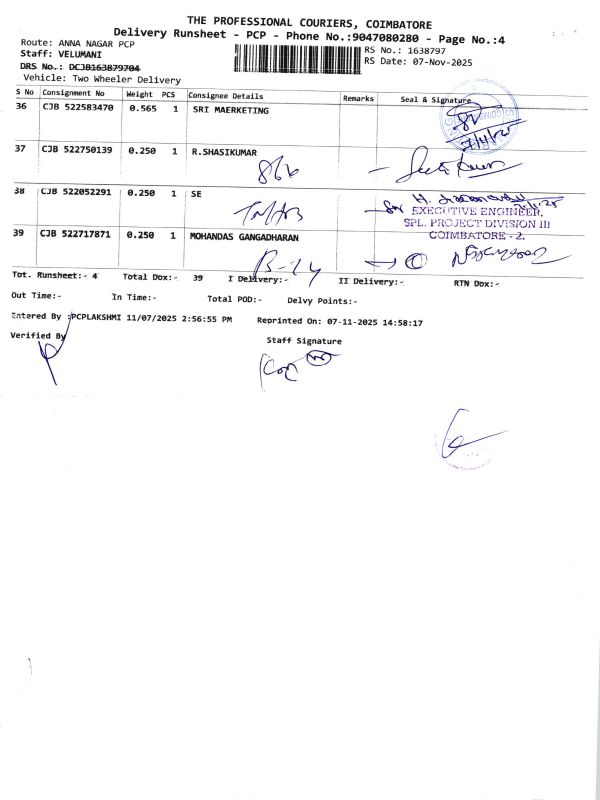 THE PROFESSIONAL COURIERS, COIMBATORE
Delivery Runsheet - PCP - Phone No.:9047080280 - Page No.:4
Route: ANNA NAGAR PCP
Staff: VELUMANI
DRS No.: DCJB163879704
Vehicle: Two Wheeler Delivery
RS No.: 1638797
RS Date: 07-Nov-2025
S No Consignment No Weight PCS Consignee Details Remarks Seal & Signature
36 CJB 522583470 0.565 1 SRI MAERKETING
37 CJB 522750139 0.250 1 R.SHASIKUMAR
866
38 CJB 522052291 0.250 1 SE
EXECUTIVE ENGINEER,
SPL. PROJECT DIVISION III
COIMBATORE - 2.
39 CJB 522717871 0.250 1 MOHANDAS GANGADHARAN
Tot. Runsheet:- 4 Total Dox:- 39 I Delivery:- II Delivery:- RTN Dox:-
Out Time:- In Time:- Total POD:- Delvy Points:-
Entered By :PCPLAKSHMI 11/07/2025 2:56:55 PM Reprinted On: 07-11-2025 14:58:17
Verified By Staff Signature